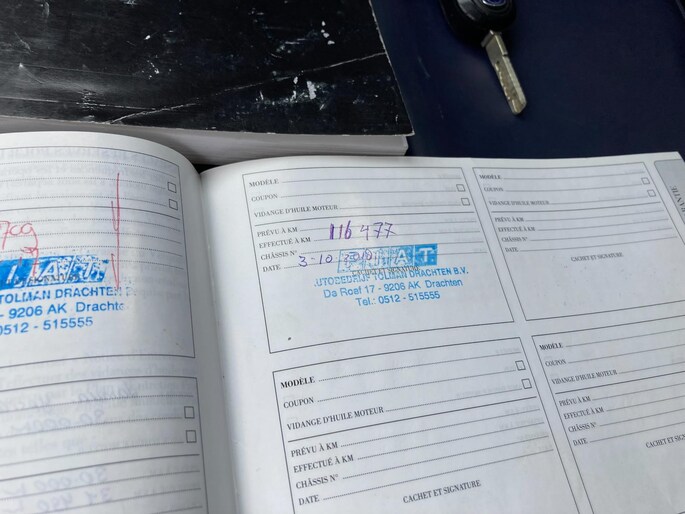 709
FIAT
TOLMAN DRACHTEN
- 9206 AK Drachte
0512 - 515555
MODÈLE
COUPON
VIDANGE D'HUILE MOTEUR
PRÉVU À KM
EFFECTUÉ À KM 116 477
CHÂSSIS N°
DATE 3-10
FIAT
CACHET ET SIGNATURE
AUTOBEDRIJF TOLMAN DRACHTEN B.V.
De Roef 17 - 9206 AK Drachten
Tel.: 0512 - 515555
MODÈLE
COUPON
VIDANGE D'HUILE MOTEUR
PRÉVU À KM
EFFECTUÉ À KM
CHÂSSIS N°
DATE
CACHET ET SIGNATURE
MODÈLE
COUPON
VIDANGE D'HUILE MOTEUR
PRÉVU À KM
EFFECTUÉ À KM
CHÂSSIS N°
DATE
CACHET ET SIGNATURE
MODÈLE
COUPON
VIDANGE D'HUILE MOTEUR
PRÉVU À KM
EFFECTUÉ À KM
CHÂSSIS N°
DATE
CACHET ET SIGNATURE